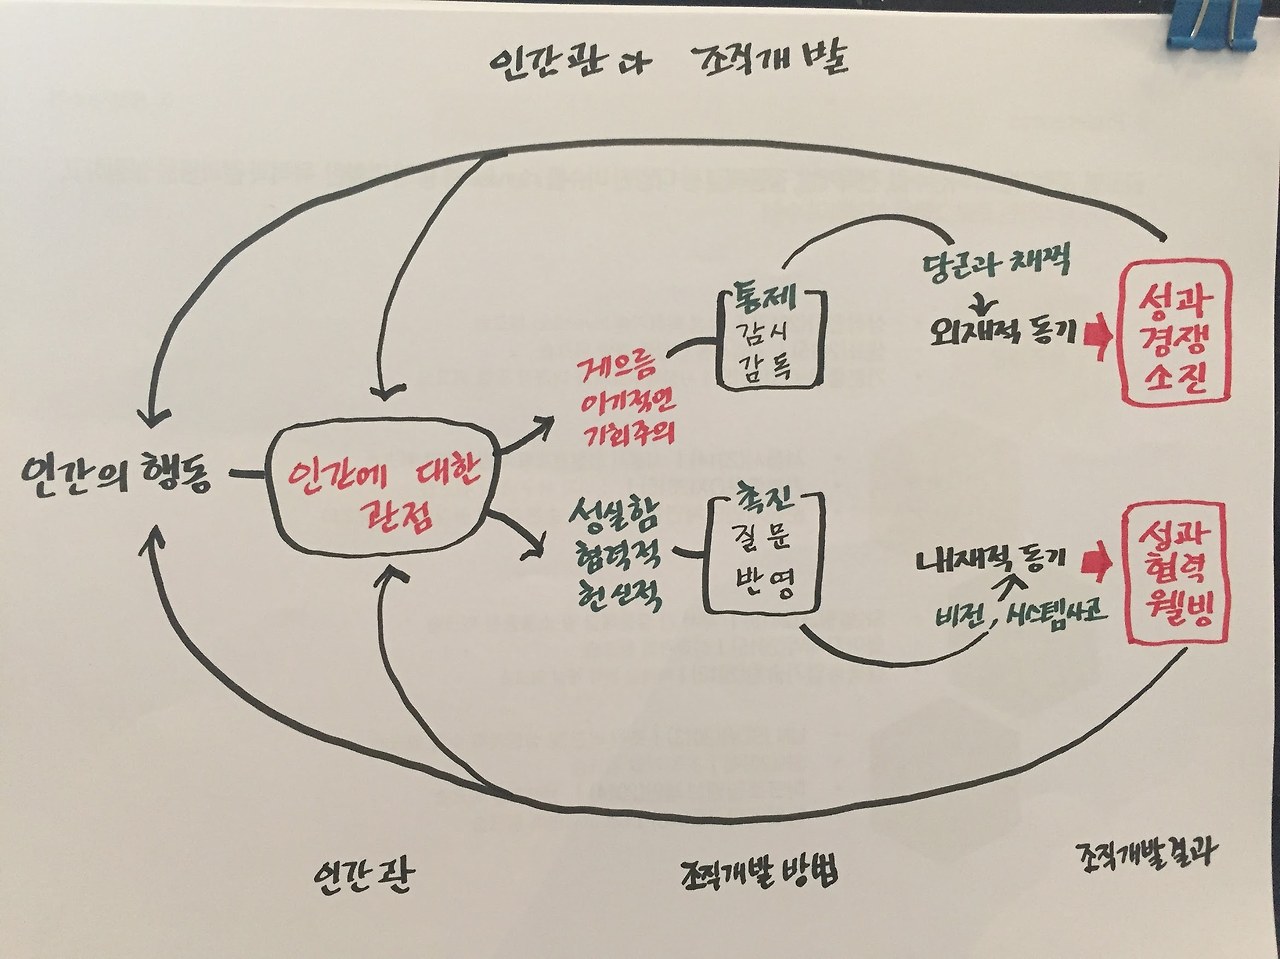 인간관과 조직개발
당근과 채찍
통제
감시
감독
외재적 동기
성과
경쟁
소진
게으름
이기적인
기회주의
인간의 행동
인간에 대한
관점
성실함
협력적
헌신적
촉진
질문
반영
내재적 동기
비전, 시스템사고
성과
협력
웰빙
인간관
조직개발 방법
조직개발결과